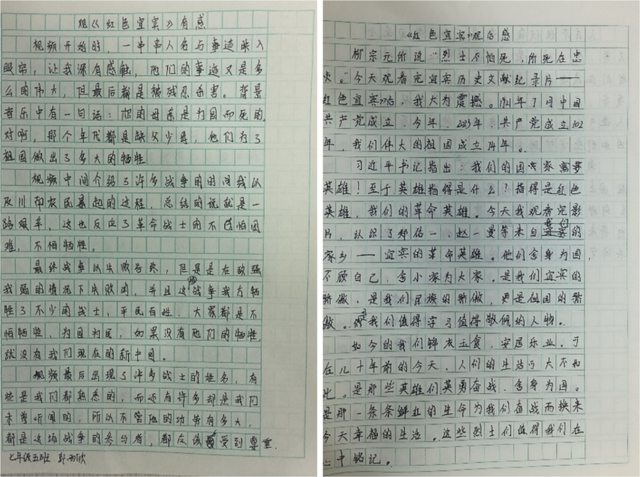 观《红色宜宾》有感
视频开始时，一串串人名与事迹映入
眼帘，让我深有感触，他们的事迹又是多
么的伟大，但最后都是被残忍杀害。背景
音乐中有一句话：他的母亲是为国而死的，
对啊，那个年代都是缺父少母，他们为了
祖国做出了多大的牺牲
视频中间介绍了许多战争的时间以
及川
农民暴动的过程，总结的说就是一
路艰辛，这也反应了革命战士们不怕困
难，不怕牺牲。
最终战争以失败告终，但是是在敌强
我弱的情况下失败的，并且这战争我方牺
牲了不少的战士，平民百姓，大家都是不
怕牺牲，为国为民，如果没有他们的牺牲，
就没有我们现在的新中国。
视频最后出现了许多战士的姓名，有
些是我们都熟悉的，而还有许多却是我们
未曾听闻的，所以不管他的功劳有多大，
都是这场战争的参与者，都应该受到尊重.
七年级五班
《红色宜宾》观后感
柳宗元所说“烈士不怕死，所死在忠
贞。”今天观看完宜宾历史文献纪录片——
红色宜宾
我大为震撼。1921年7月中国
共产党成立，今年，2023年，共产党成立102
年，我们伟大的祖国成立74年。
习近平书记指出：我们的国家需要
英雄！至于英雄指得是什么？指得是红色
英雄，我们的革命英雄。今天我观看完影
片，认识了郑佑一、赵一曼等来自我们
家乡——宜宾的革命英雄。他们舍身为国，
不顾自己，舍小家为大家。是我们宜宾的
骄傲，是我们民族的骄傲，更是祖国的骄
傲。是我们值得学习值得敬佩的人物。
如今的我们锦衣玉食，安居乐业。于
在几十年前的今天，人们的生活与大不如
此。是那些英雄们英勇奋战，舍身为国。
是那一条条鲜红的生命为我们奋战而换来
今天幸福的生活。这些烈士们值得我们在
心中铭记。